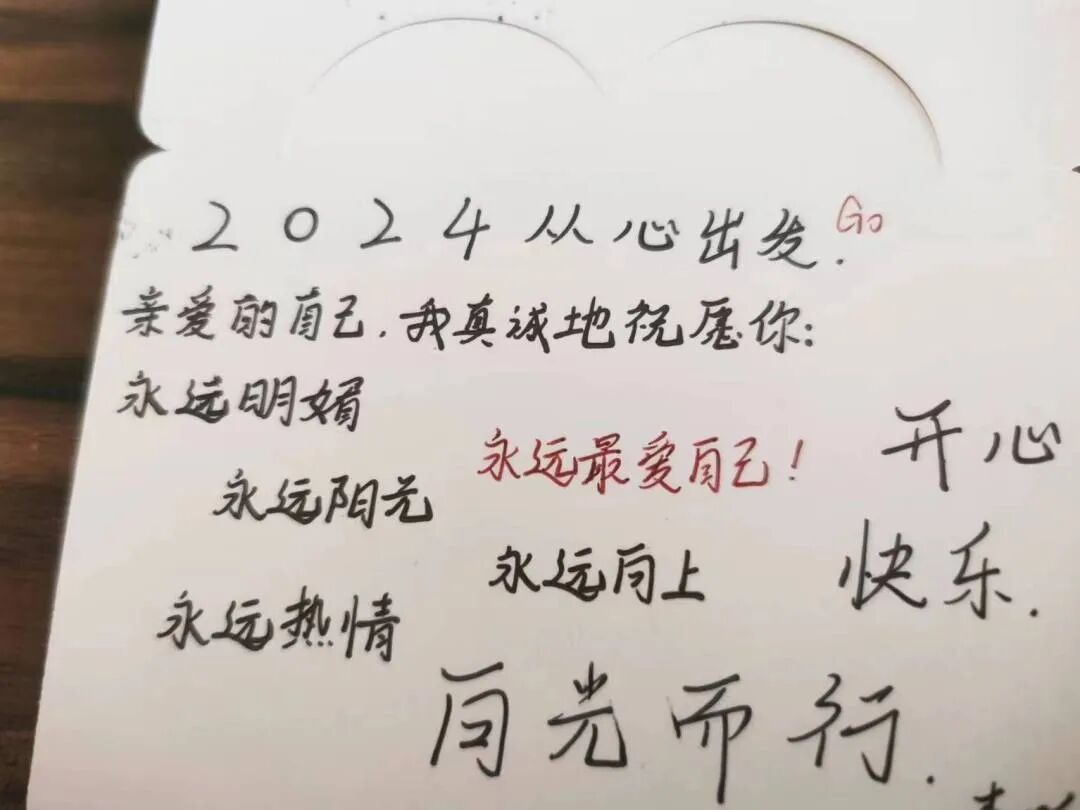 2024从心出发. Go
亲爱的自己.我真诚地祝愿你:
永远明媚
永远最爱自己!
开心
永远阳光
永远向上
快乐.
永远热情
向光而行.